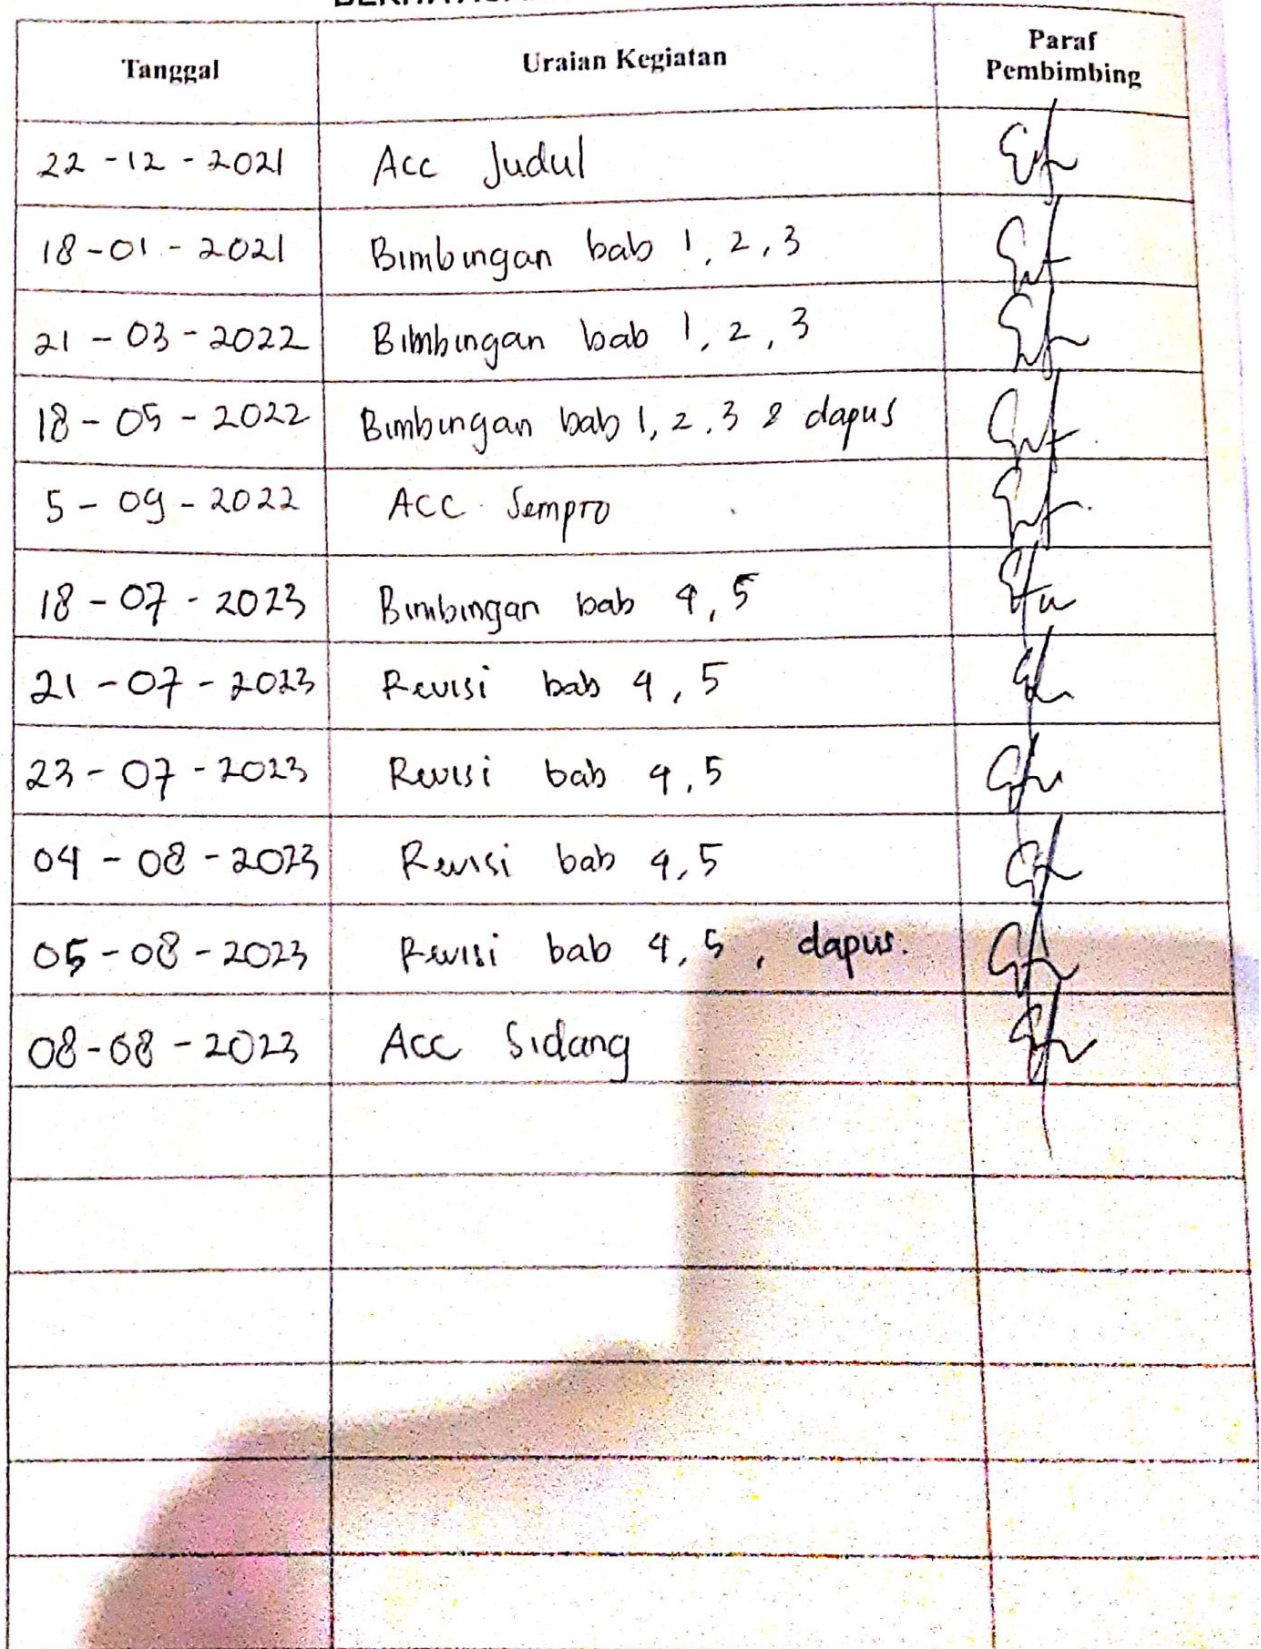 Tanggal Uraian Kegiatan Paraf
Pembimbing
22 - 12 - 2021 Acc Judul
18 - 01 - 2021 Bimbingan bab 1, 2, 3
21 - 03 - 2022 Bimbingan bab 1, 2, 3
18 - 05 - 2022 Bimbingan bab 1, 2, 3 & dapus
5 - 09 - 2022 ACC Sempro
18 - 07 - 2023 Bimbingan bab 4, 5
21 - 07 - 2023 Revisi bab 4, 5
23 - 07 - 2023 Revisi bab 4, 5
04 - 08 - 2023 Revisi bab 4, 5
05 - 08 - 2023 Revisi bab 4, 5, dapus.
08 - 08 - 2023 Acc Sidang